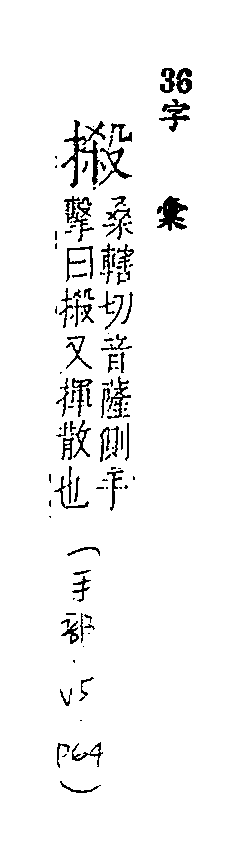 36字彙
摋桑轄切音薩側手
擊曰摋又揮散也
(手部.V5.P64)